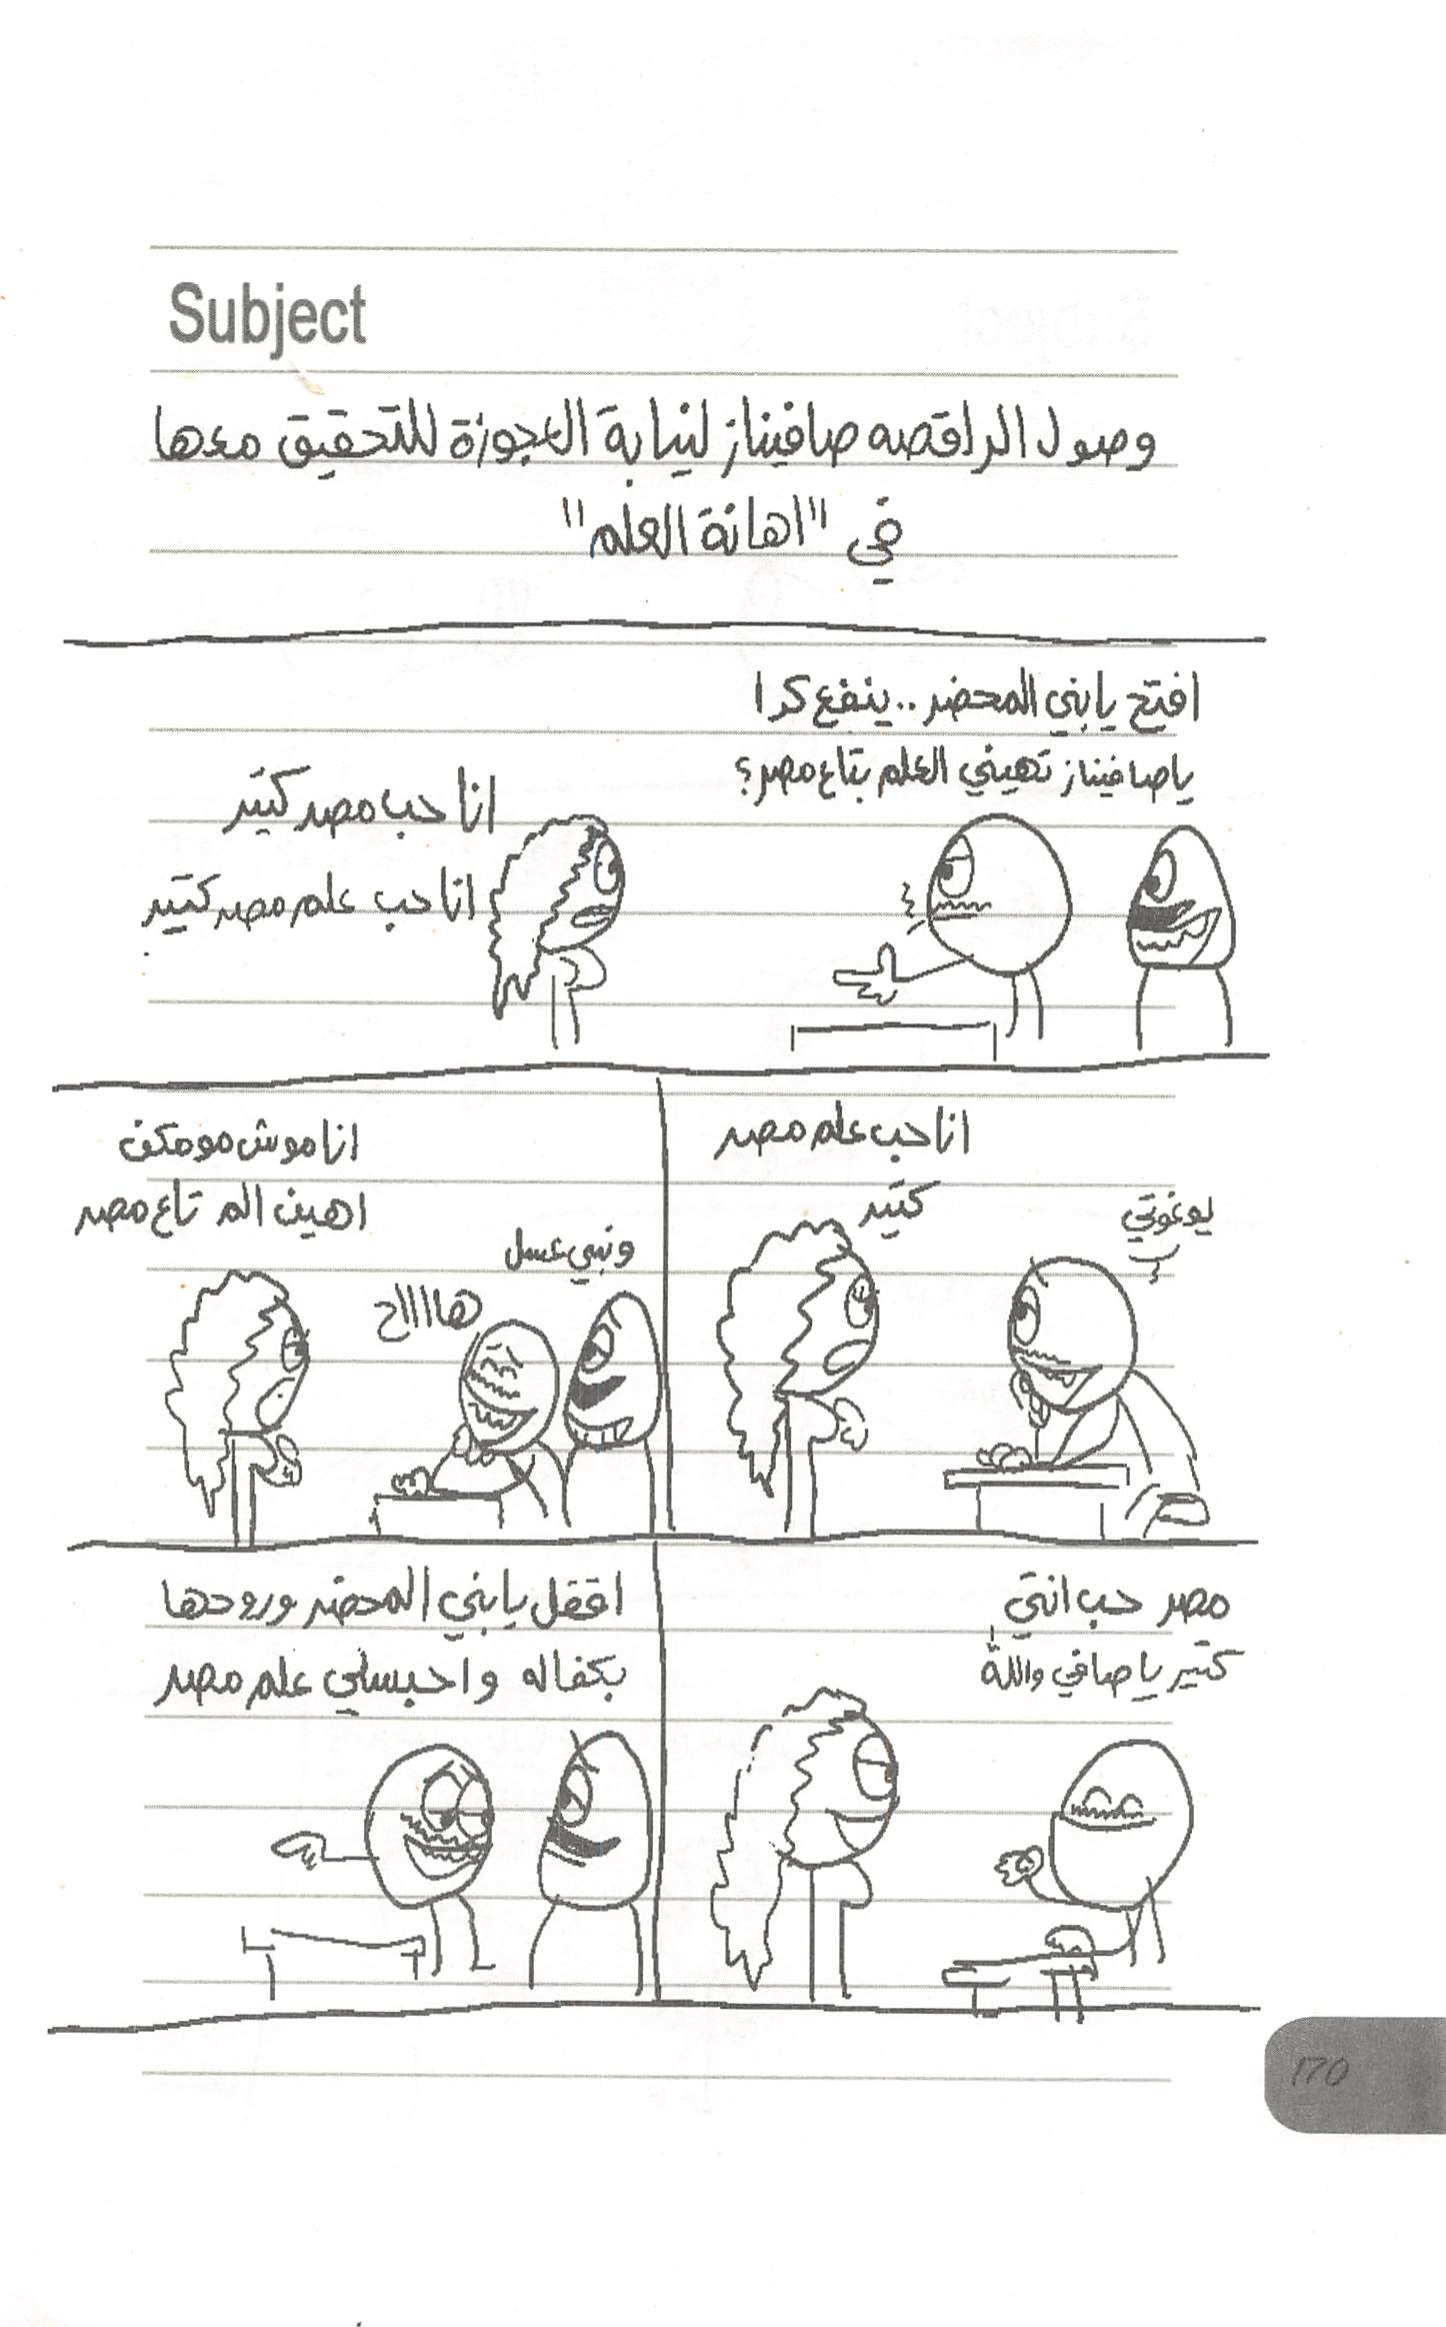 Subject
وصول الراقصه صافيناز لنيابة العجوزة للتحقيق معها
في "اهانة العلم"
افتح يا بني المحضر .. ينفع كدا
يا صافيناز تهيني العلم بتاع مصر؟
انا حب مصر كتير
انا حب علم مصر كتير
انا حب علم مصر
كتير
يوغوتي
انا موش مومكن
اهين الم تاع مصر
ونبي عسل
هااااح
مصر حب انتي
كتير يا صافي والله
اقفل يا بني المحضر وروحها
بكفاله واحبسلي علم مصر
170